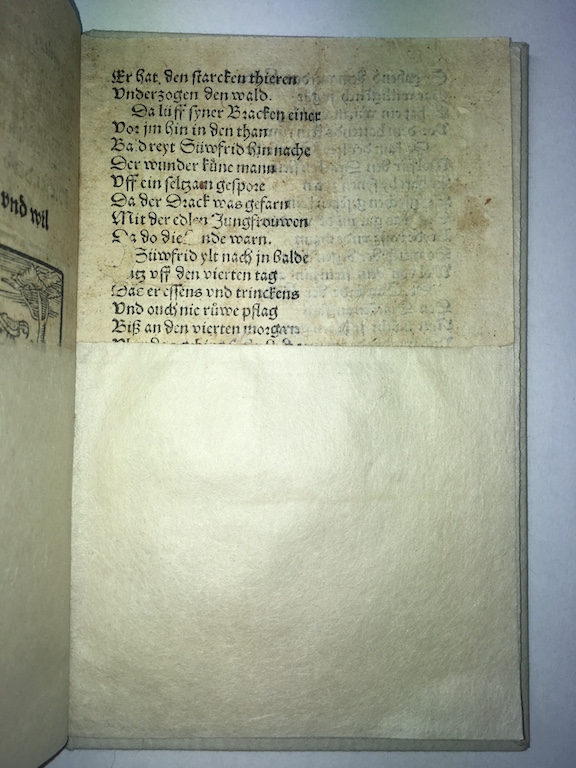 vnd wil
Er hat den starcken thieren
Vnderzogen den wald.
Da lüff syner Bracken einer
Vor jm hin in den than
Bald reyt Süwfrid hin nache
Der wunder küne mann
Vff ein seltzam gespore
Da der Drack was gefarn
Mit der edlen Jungfrouwen
Da do die nde warn.
Süwfrid ylt nach jn balde
vff den vierten tag
Das er essens vnd trinckens
Vnd ouch nie rüwe pflag
Biß an den vierten morgen